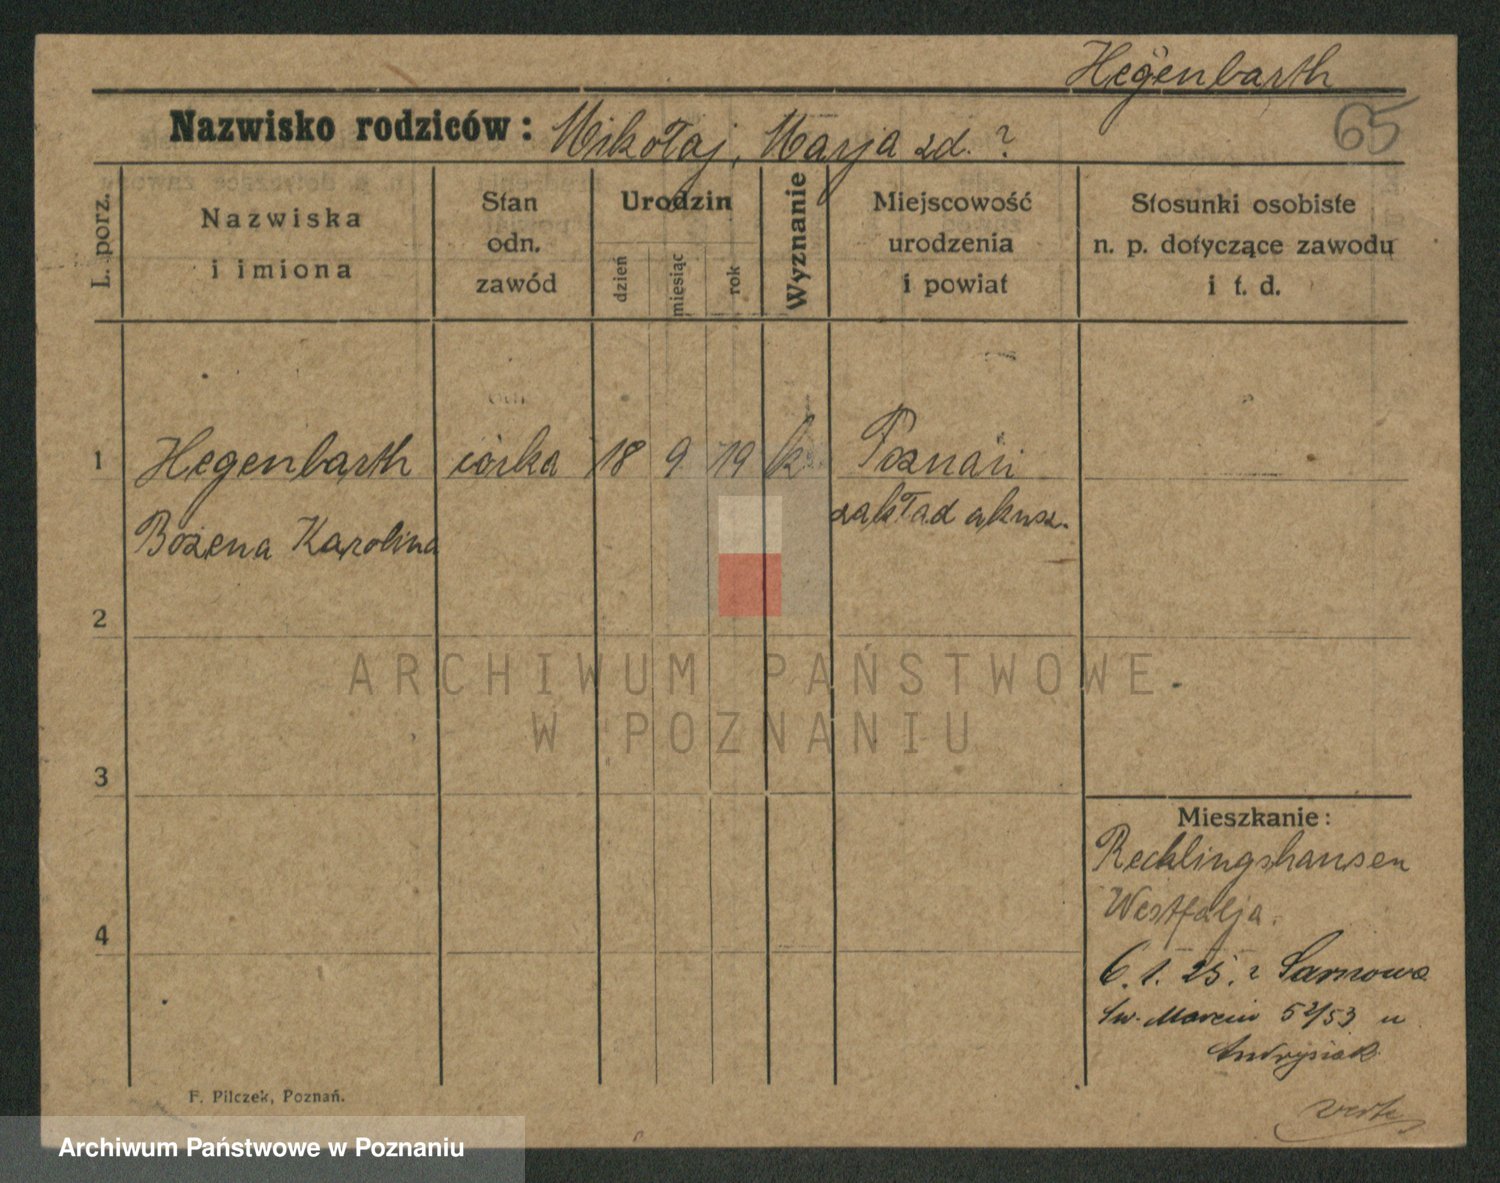 Hegenbarth
65
Nazwisko rodziców: Mikołaj, Marja zd. ?
L. porz.
Nazwiska
i imiona
Stan
odn.
zawód
Urodzin
dzień
miesiąc
rok
Wyznanie
Miejscowość
urodzenia
i powiat
Stosunki osobiste
n. p. dotyczące zawodu
i t. d.
1 Hegenbarth córka 18 9 19 k Poznań
Bożena Karolina zakład akusz.
2
3
4
ARCHIWUM PAŃSTWOWE
W POZNANIU
Mieszkanie:
Recklingshausen
Westfalja.
6.1.25. z Sarnowa
Św. Marcin 52/53 u
Andrysiak
F. Pilczek, Poznań.
Archiwum Państwowe w Poznaniu